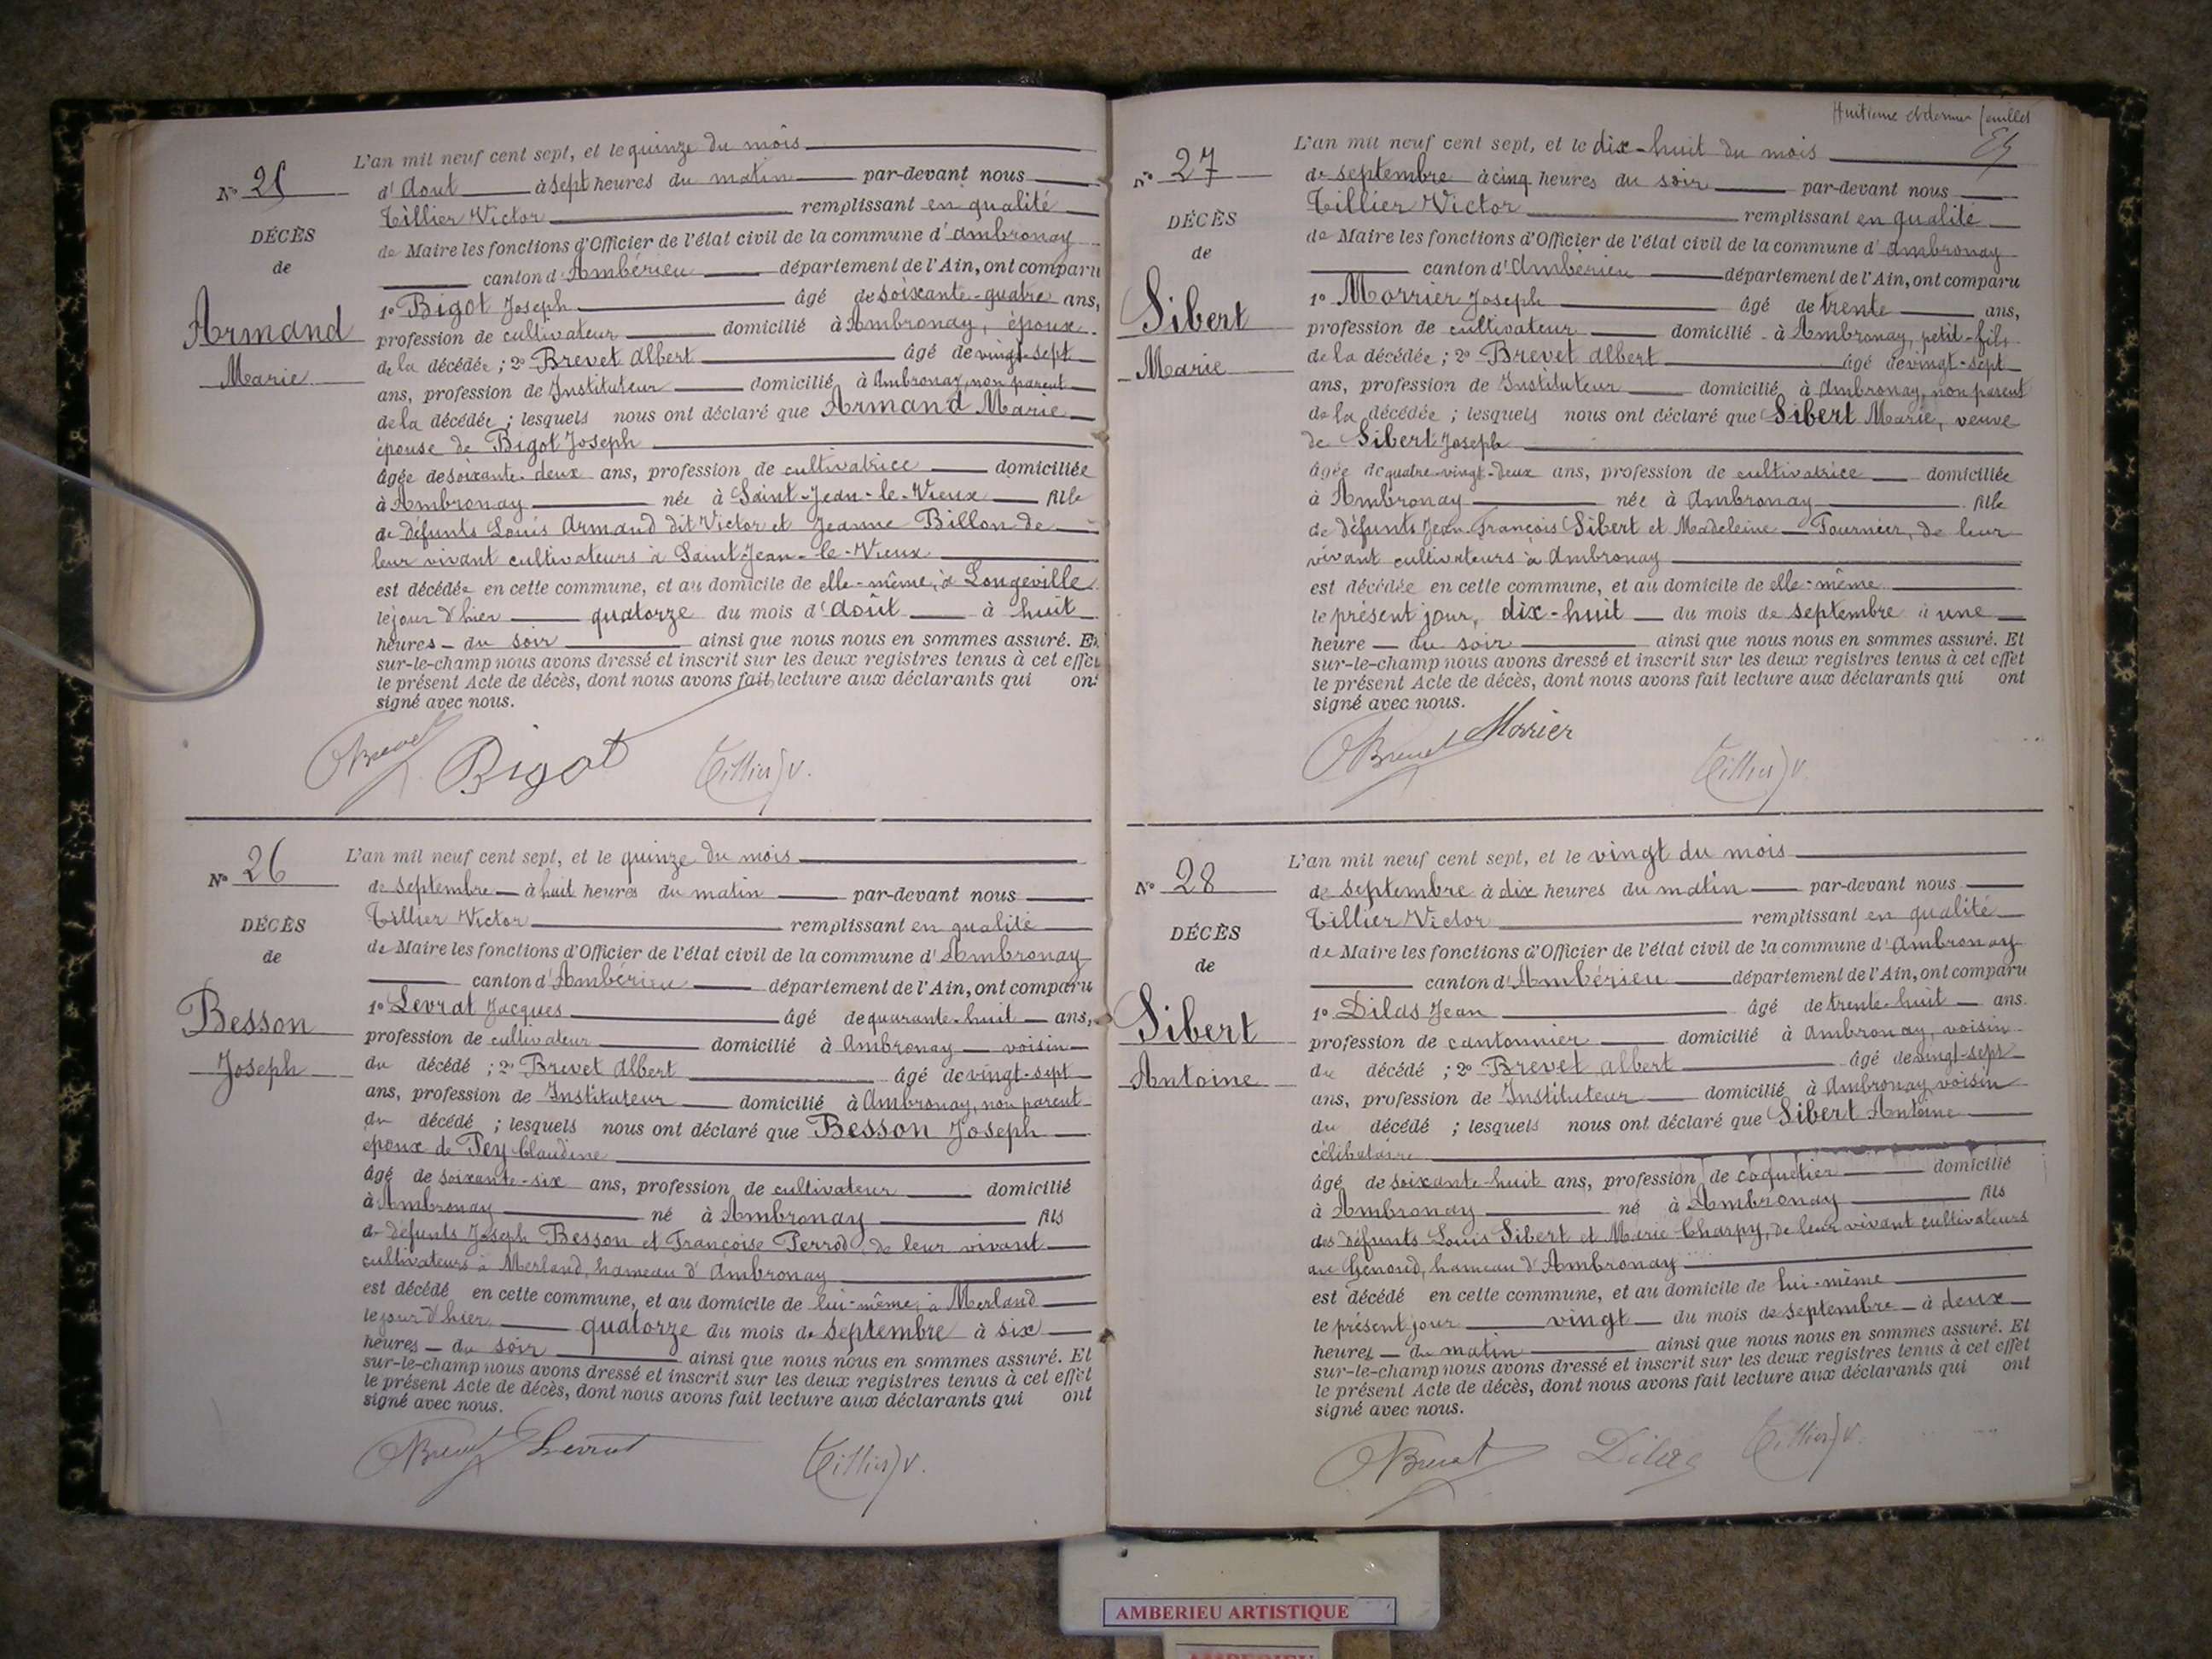 L'an mil neuf cent sept, et le quinze du mois
N° 25
d'Aout à sept heures du matin par-devant nous
Tillier Victor remplissant en qualité
DÉCÈS
de Maire les fonctions d'Officier de l'état civil de la commune d'Ambronay
de
canton d'Ambérieu département de l'Ain, ont comparu
1° Bigot Joseph âgé de soixante-quatre ans,
Armand
profession de cultivateur domicilié à Ambronay, époux
de la décédée ; 2° Brevet Albert âgé de vingt-sept
Marie
ans, profession de Instituteur domicilié à Ambronay, non parent
de la décédée ; lesquels nous ont déclaré que Armand Marie
épouse de Bigot Joseph
âgée de soixante-deux ans, profession de cultivatrice domiciliée
à Ambronay née à Saint-Jean-le-Vieux fille
de défunts Louis Armand dit Victor et Jeanne Billon de
leur vivant cultivateurs à Saint-Jean-le-Vieux
est décédée en cette commune, et au domicile de elle-même, à Longeville
le jour d'hier quatorze du mois d'août à huit
heures du soir ainsi que nous nous en sommes assuré. Et
sur-le-champ nous avons dressé et inscrit sur les deux registres tenus à cet effet
le présent Acte de décès, dont nous avons fait lecture aux déclarants qui ont
signé avec nous.
Brevet Bigot Tillier V.
L'an mil neuf cent sept, et le quinze du mois
N° 26
de septembre à huit heures du matin par-devant nous
Tillier Victor remplissant en qualité
DÉCÈS
de Maire les fonctions d'Officier de l'état civil de la commune d'Ambronay
de
canton d'Ambérieu département de l'Ain, ont comparu
1° Levrat Jacques âgé de quarante-huit ans,
Besson
profession de cultivateur domicilié à Ambronay voisin
du décédé ; 2° Brevet Albert âgé de vingt-sept
Joseph
ans, profession de Instituteur domicilié à Ambronay, non parent
du décédé ; lesquels nous ont déclaré que Besson Joseph
époux de Pey Claudine
âgé de soixante-six ans, profession de cultivateur domicilié
à Ambronay né à Ambronay fils
de défunts Joseph Besson et Françoise Perrod, de leur vivant
cultivateurs à Merland, hameau d'Ambronay
est décédé en cette commune, et au domicile de lui-même, à Merland
le jour d'hier quatorze du mois de septembre à six
heures du soir ainsi que nous nous en sommes assuré. Et
sur-le-champ nous avons dressé et inscrit sur les deux registres tenus à cet effet
le présent Acte de décès, dont nous avons fait lecture aux déclarants qui ont
signé avec nous.
Brevet Levrat Tillier V.
Huitième et dernier feuillet
L'an mil neuf cent sept, et le dix-huit du mois
N° 27
de septembre à cinq heures du soir par-devant nous
Tillier Victor remplissant en qualité
DÉCÈS
de Maire les fonctions d'Officier de l'état civil de la commune d'Ambronay
de
canton d'Ambérieu département de l'Ain, ont comparu
1° Morrier Joseph âgé de trente ans,
Sibert
profession de cultivateur domicilié à Ambronay, petit-fils
de la décédée ; 2° Brevet Albert âgé de vingt-sept
Marie
ans, profession de Instituteur domicilié à Ambronay, non parent
de la décédée ; lesquels nous ont déclaré que Sibert Marie, veuve
de Sibert Joseph
âgée de quatre-vingt-deux ans, profession de cultivatrice domiciliée
à Ambronay née à Ambronay fille
de défunts Jean-François Sibert et Madeleine Fournier, de leur
vivant cultivateurs à Ambronay
est décédée en cette commune, et au domicile de elle-même
le présent jour, dix-huit du mois de septembre à une
heure du soir ainsi que nous nous en sommes assuré. Et
sur-le-champ nous avons dressé et inscrit sur les deux registres tenus à cet effet
le présent Acte de décès, dont nous avons fait lecture aux déclarants qui ont
signé avec nous.
Brevet Morrier Tillier V.
L'an mil neuf cent sept, et le vingt du mois
N° 28
de septembre à dix heures du matin par-devant nous
Tillier Victor remplissant en qualité
DÉCÈS
de Maire les fonctions d'Officier de l'état civil de la commune d'Ambronay
de
canton d'Ambérieu département de l'Ain, ont comparu
1° Dilas Jean âgé de trente-huit ans.
Sibert
profession de cantonnier domicilié à Ambronay, voisin
du décédé ; 2° Brevet Albert âgé de vingt-sept
Antoine
ans, profession de Instituteur domicilié à Ambronay voisin
du décédé ; lesquels nous ont déclaré que Sibert Antoine
célibataire
âgé de soixante-huit ans, profession de coquetier domicilié
à Ambronay né à Ambronay fils
des défunts Louis Sibert et Marie Charpy, de leur vivant cultivateurs
au Genoud, hameau d'Ambronay
est décédé en cette commune, et au domicile de lui-même
le présent jour vingt du mois de septembre à deux
heures du matin ainsi que nous nous en sommes assuré. Et
sur-le-champ nous avons dressé et inscrit sur les deux registres tenus à cet effet
le présent Acte de décès, dont nous avons fait lecture aux déclarants qui ont
signé avec nous.
Brevet Dilas Tillier V.
AMBERIEU ARTISTIQUE
AMBERIEU